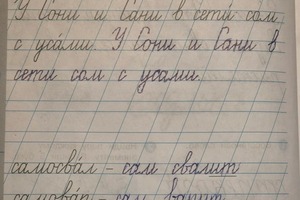 У Сони и Сани в сети сом
с уса́ми. У Сони и Сани в
сети сом с усами.
самосва́л – сам свалит
самова́р – сам варит